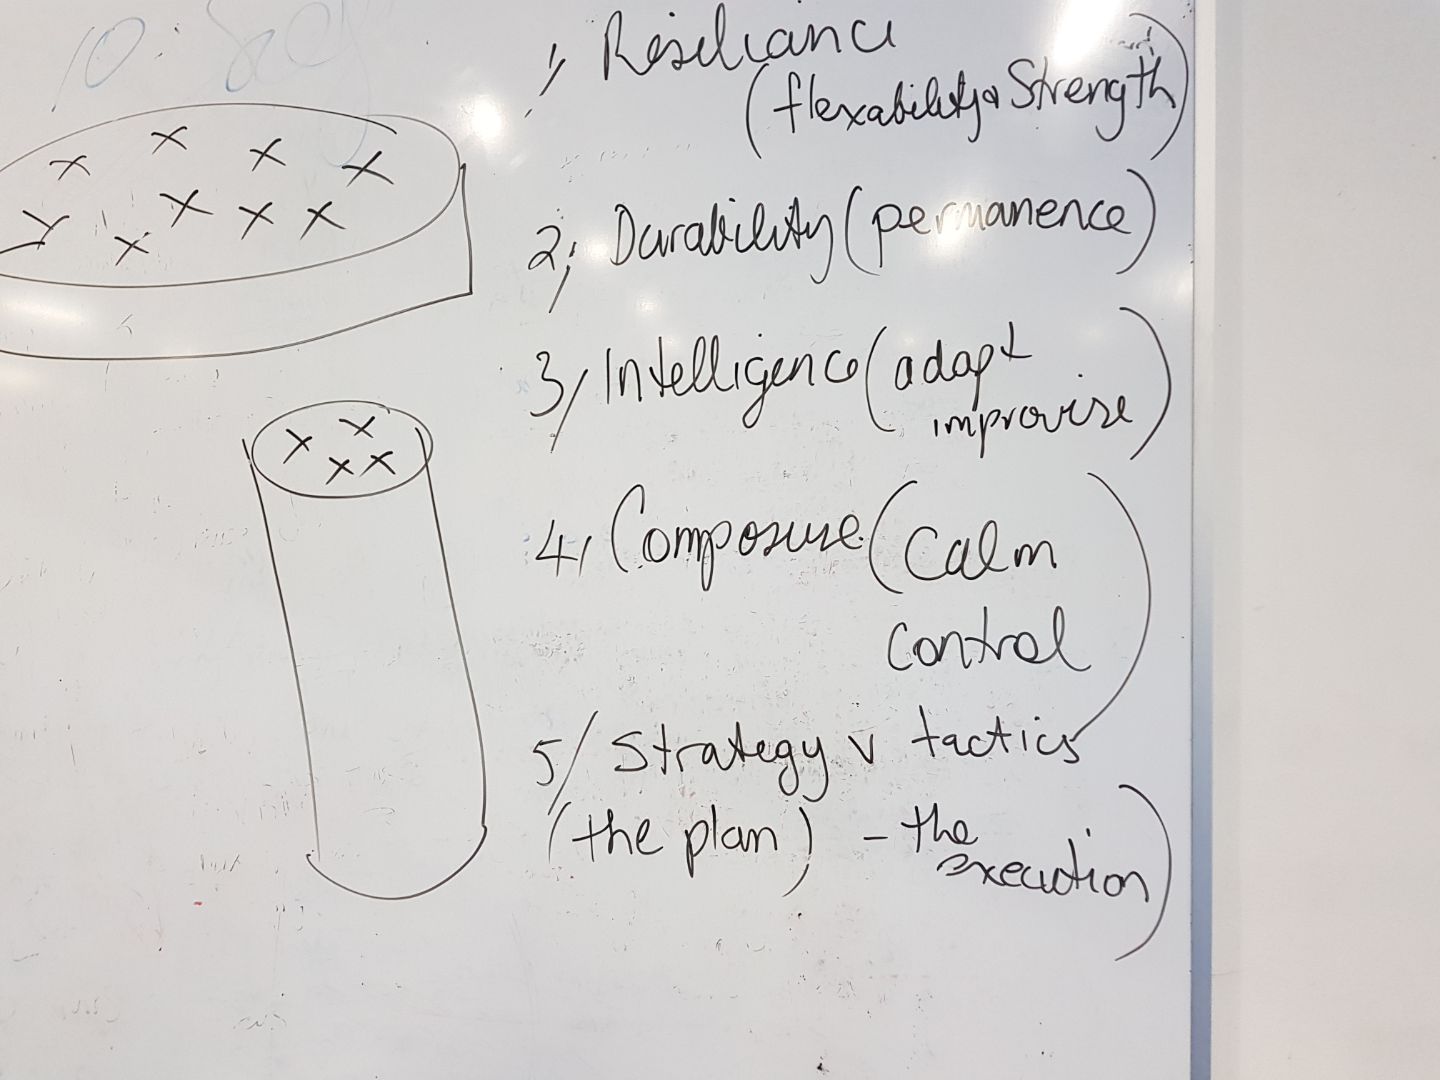 1, Resiliance
(flexability & Strength)
2, Durability (permanence)
3/ Intelligence (adapt
improvise)
4, Composure (Calm
control)
5/ Strategy v tactics
(the plan) - the
execution)